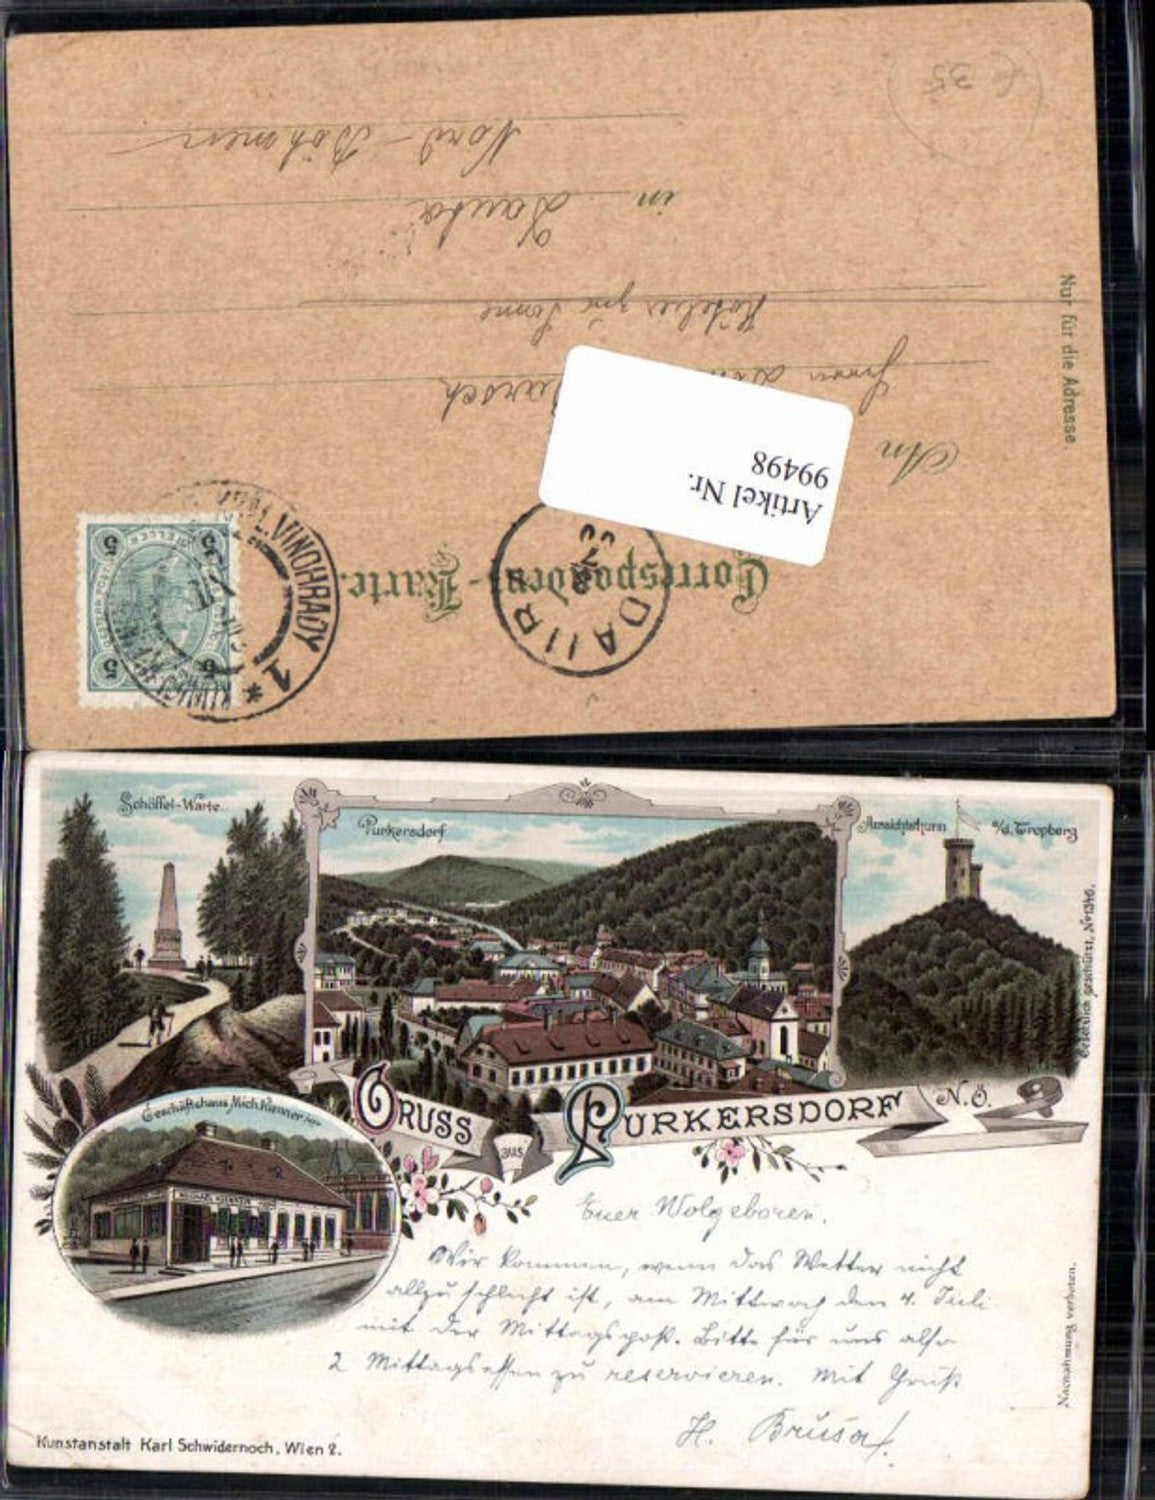 Nord-Böhmen
in Dauba
Hotelier zur Sonne
Herrn
An
Nur für die Adresse.
Artikel Nr.
99498
Correspondenz-Karte.
KGL. VINOHRADY 1
5 HELLER 5
Schöffel-Warte
Purkersdorf
Aussichtsthurm a/d. Tropberg
Gesetzlich geschützt, No 1346.
GRUSS aus PURKERSDORF N.Ö.
Geschäftshaus Mich. Kienner jun.
Euer Wolgeboren.
Wir kommen, wenn das Wetter nicht
allzu schlecht ist, am Mittwoch den 4. Juli
mit der Mittagspost. Bitte für uns also
2 Mittagessen zu reservieren. Mit Gruß
H.
Nachahmung verboten.
Kunstanstalt Karl Schwidernoch, Wien 2.